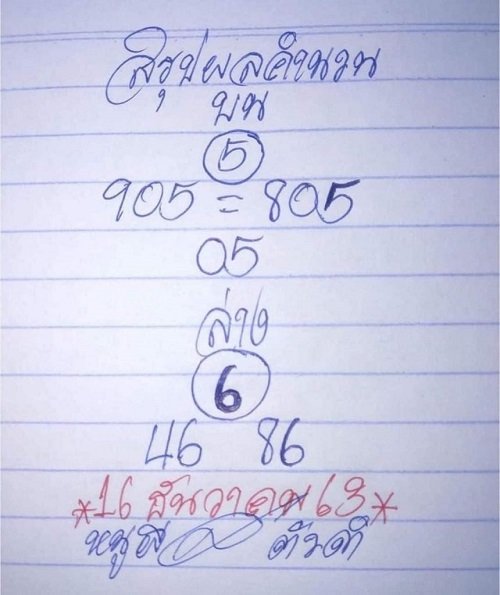 สรุปผลคำนวน
บน
5
905 = 805
05
ล่าง
6
46 86
*16 ธันวาคม 63*
หนูดี